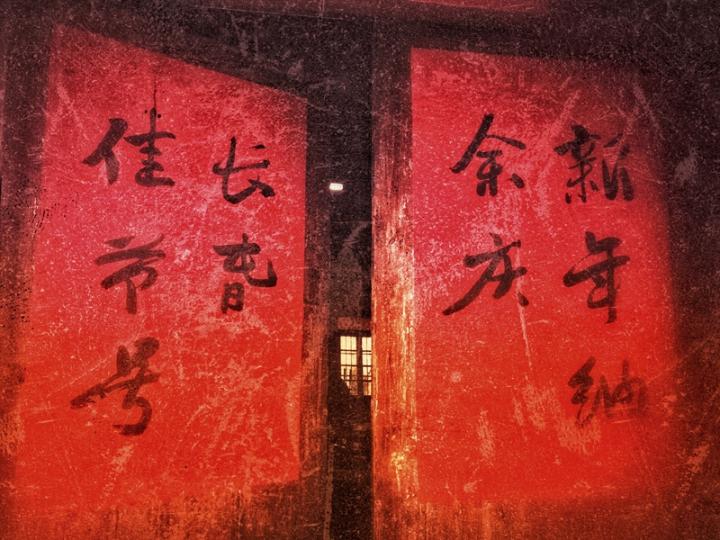 新年纳
余庆
佳节号
长旾